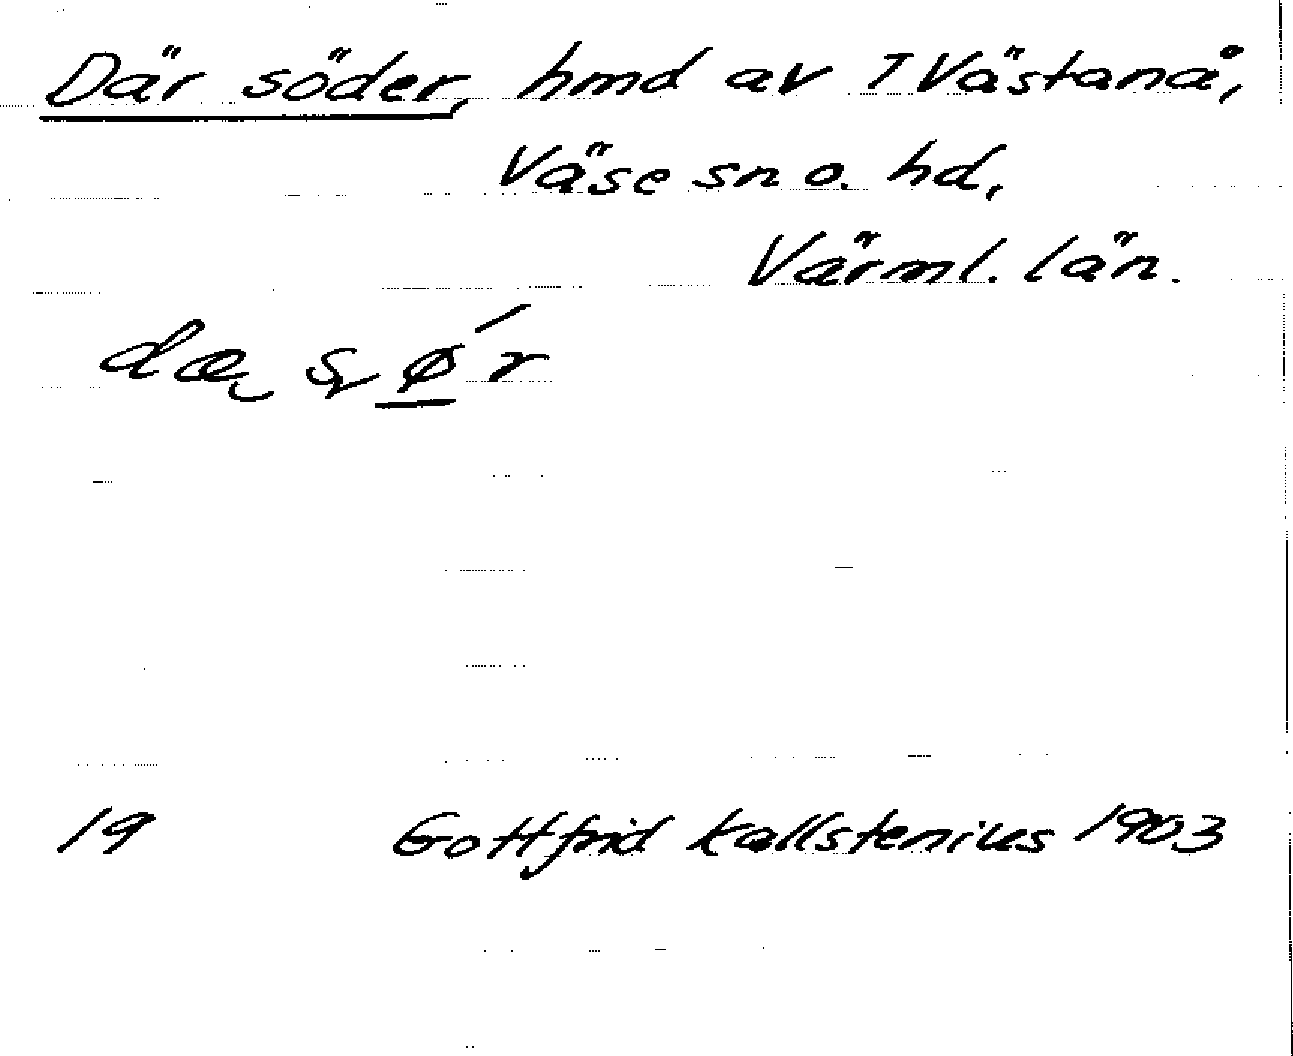 Där söder, hmd av 7 Västanå,
Väse sn o. hd,
Värml. län.
dæ sø´r
19 Gottfrid Kallstenius 1903